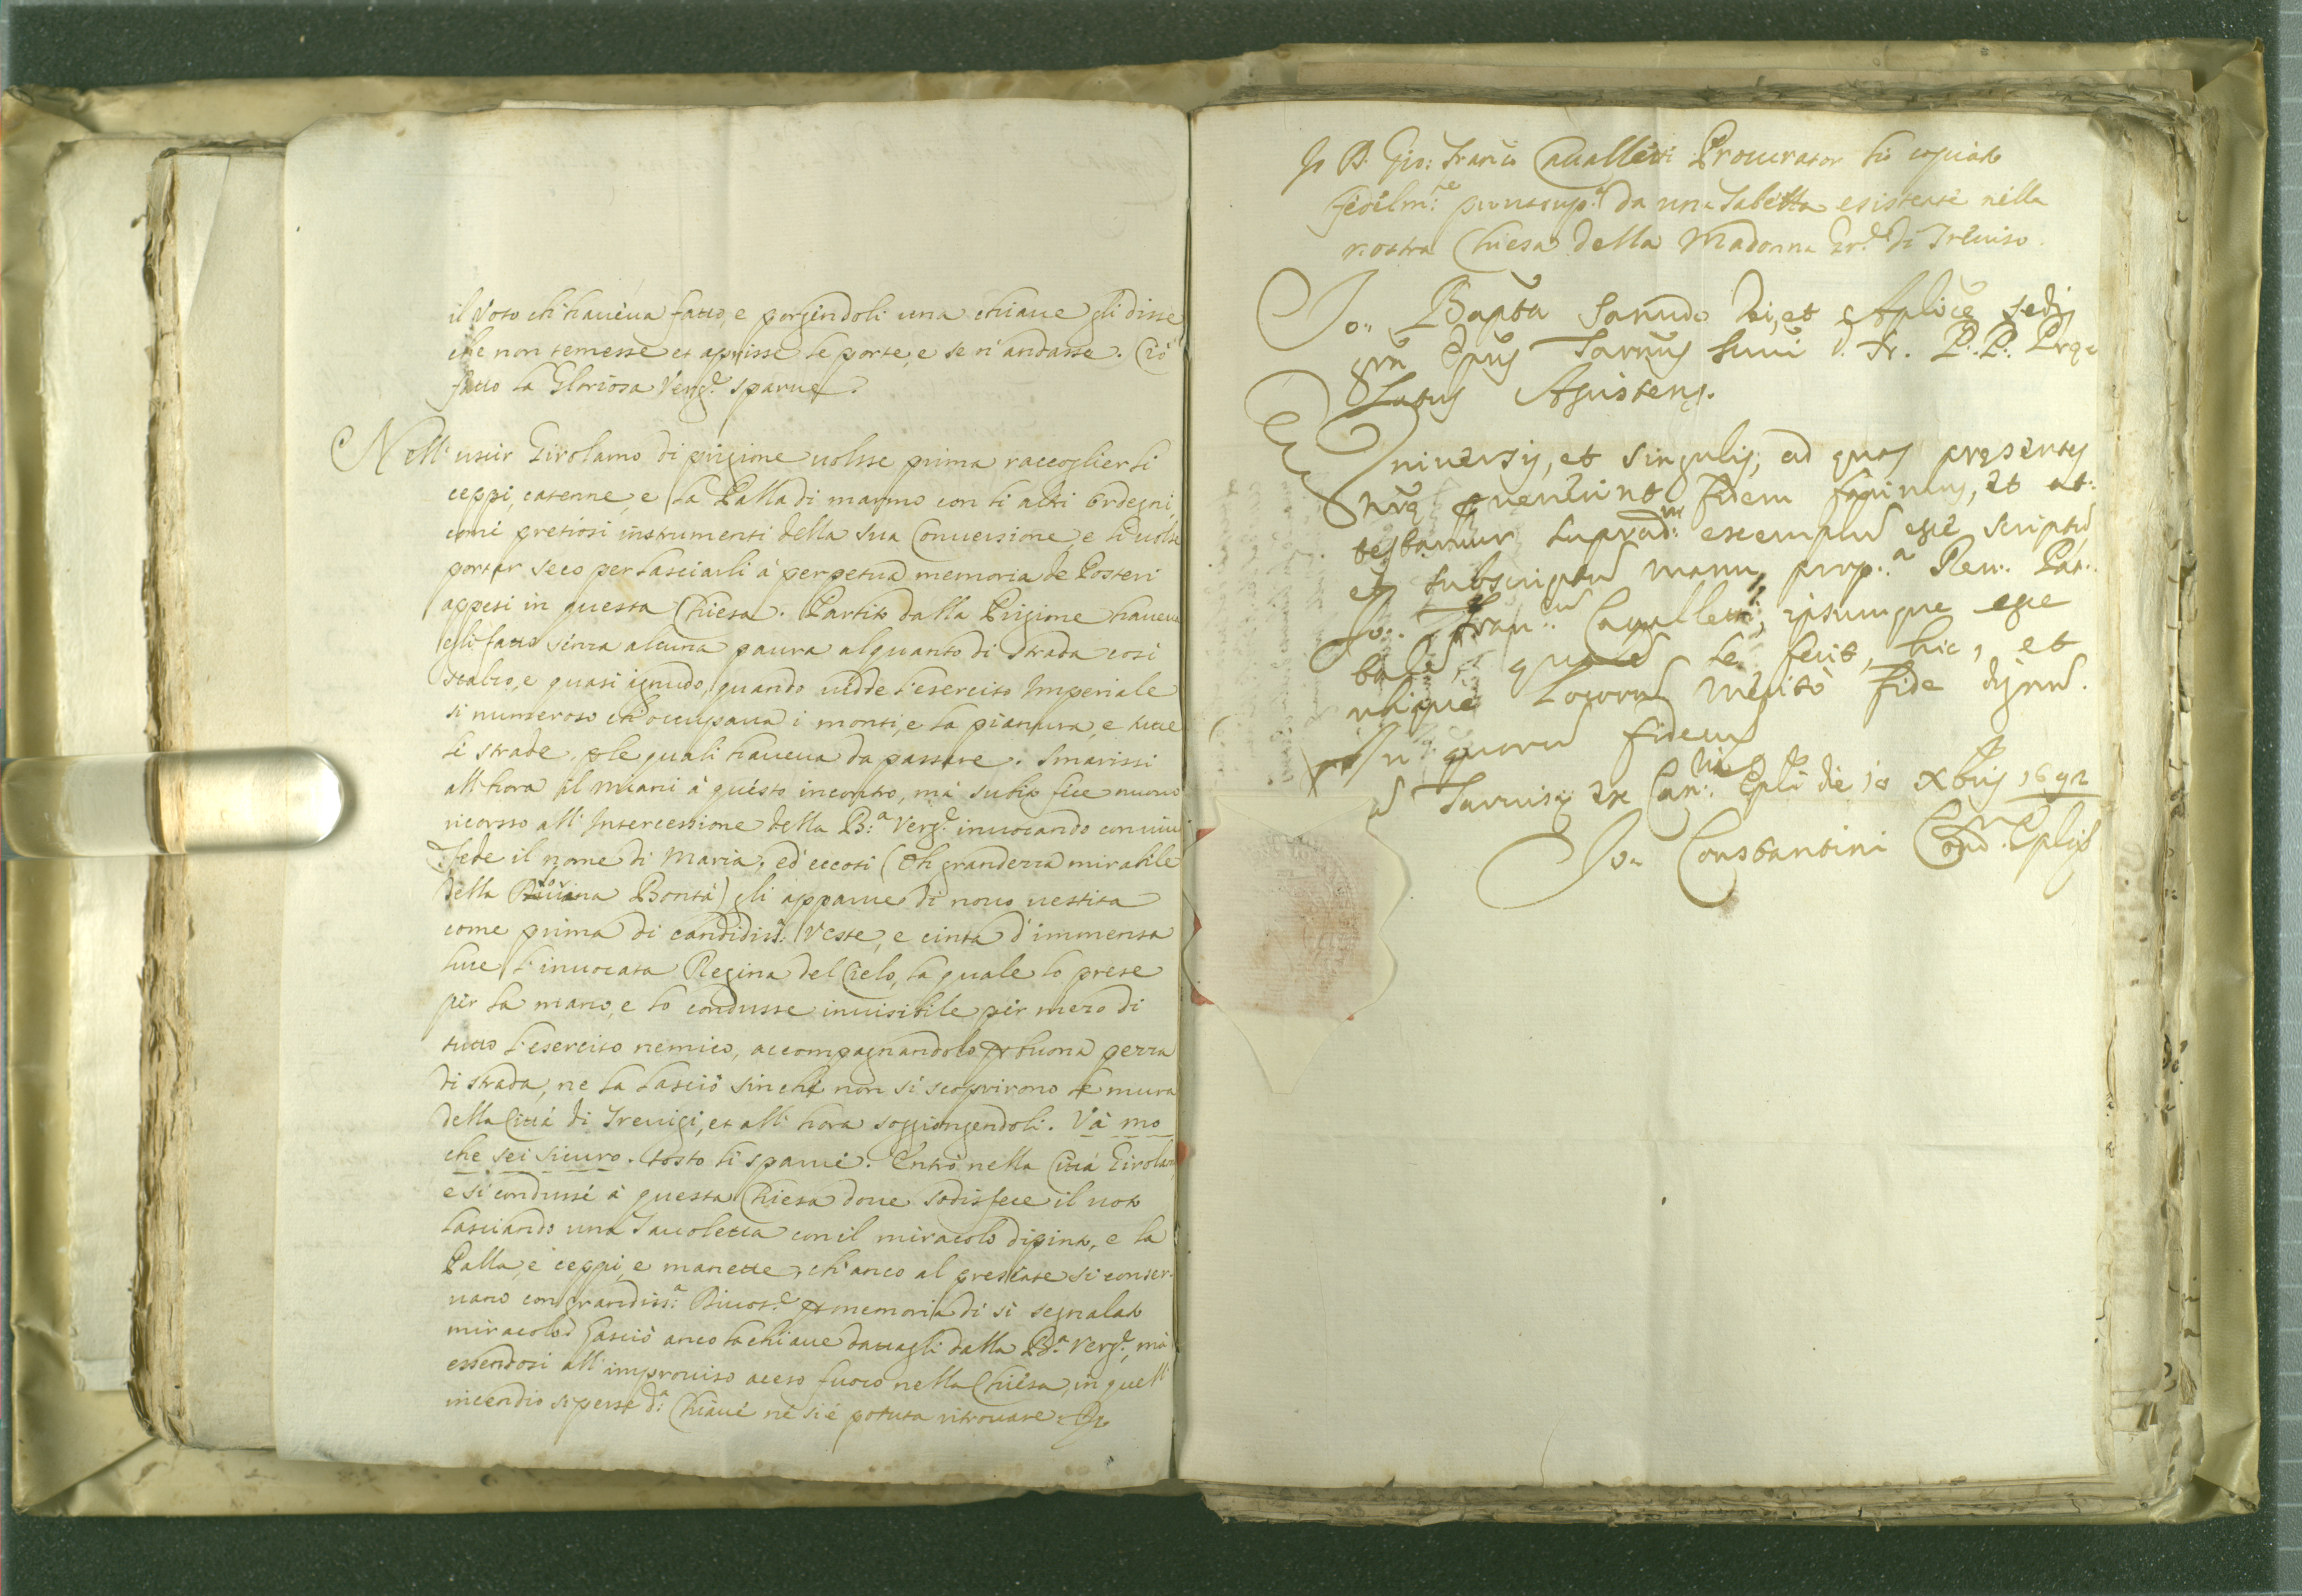 il Voto ch'haueua fatto, e porgendoli una chiaue gli disse
che non temesse et aprisse le porte, e se n'andasse. Ciò
fatto la Gloriosa Verg.e sparue.
Nell'uscir Girolamo di prigione uolsse prima raccoglier li
ceppi, catenne, e la Palla di marmo con li altri ordegni,
come pretiosi instrumenti della sua Conuersione, e li uolse
portar seco per lasciarli à perpetua memoria de Posteri
appesi in questa Chiesa. Partito dalla Prigione haueua
egli fatto senza alcuna paura alquanto di strada così
scalzo, e quasi ignudo, quando uidde l'esercito Imperiale
si numeroso ch'occupaua i monti, e la pianura, e tutte
le strade, p le quali haueua da passare. Smarissi
all'hora il Miani à questo incontro, mà subito fece nuouo
ricorsso all'Intercessione della B.a Verg.e inuocando con uiua
fede il nome di Maria, ed'eccoti (Oh grandezza mirabile
della Diuina Bontà) gli apparue di nouo uestita
come prima di candidiss: Veste, e cinta d'immensa
luce l'inuocata Regina del Cielo, la quale lo prese
per la mano, e lo condusse inuisibile per mezo di
tutto l'esercito nemico, accompagnandolo p buona pezza
di strada, ne la lasciò sin che non si scoprirono le mura
della Città di Treuigi, et all'hora soggiongendoli. Và mo
che sei sicuro. tosto li sparue. Entrò nella Città Girolamo
e si condussé à questa Chiesa doue sodisfece il uoto
lasciando una Tauoletta con il miracolo dipinto, e la
Palla, e ceppi, e manette, ch'anco al presente si conser-
uano con grandiss.a Diuot.e p memoria di si segnalato
miracolo. Lasciò anco la chiaue datagli dalla B.a Verg.e, mà
essendosi all'improuiso acceso fuoco nella Chiesa, in quell'
incendio si perse d.a Chiaue né si è potuta ritrouare
Io D. Gio: Franco Caualletti Procurator hò copiato
fedelm.te da una Tabella esistente nella
nostra Chiesa della Madonna Gr.de di Treuiso.
Jo: Bapta Sanudo Dei, et Aplice Sedis
grã Epus Taruis Smi D. N. P.P. Prae
latus Assistens.
Vniuersis, et singulis, ad quos presentes
nrae peruenerint fidem facimus, et at-
testamur suprad.m exemplũ esse scriptũ
et subscriptũ manu prop.a Reu. Pat.
Jo: Fran.cũ Caualletti, ipsumque esse
talẽ, qualẽ se fecit, hic, et
ubique locorũ meritò fide dignũ.
In quorũ fidem
Taruisij ex Canc. Epli die 18 Xbris 1692
Jo: Constantini Coad. Eplis